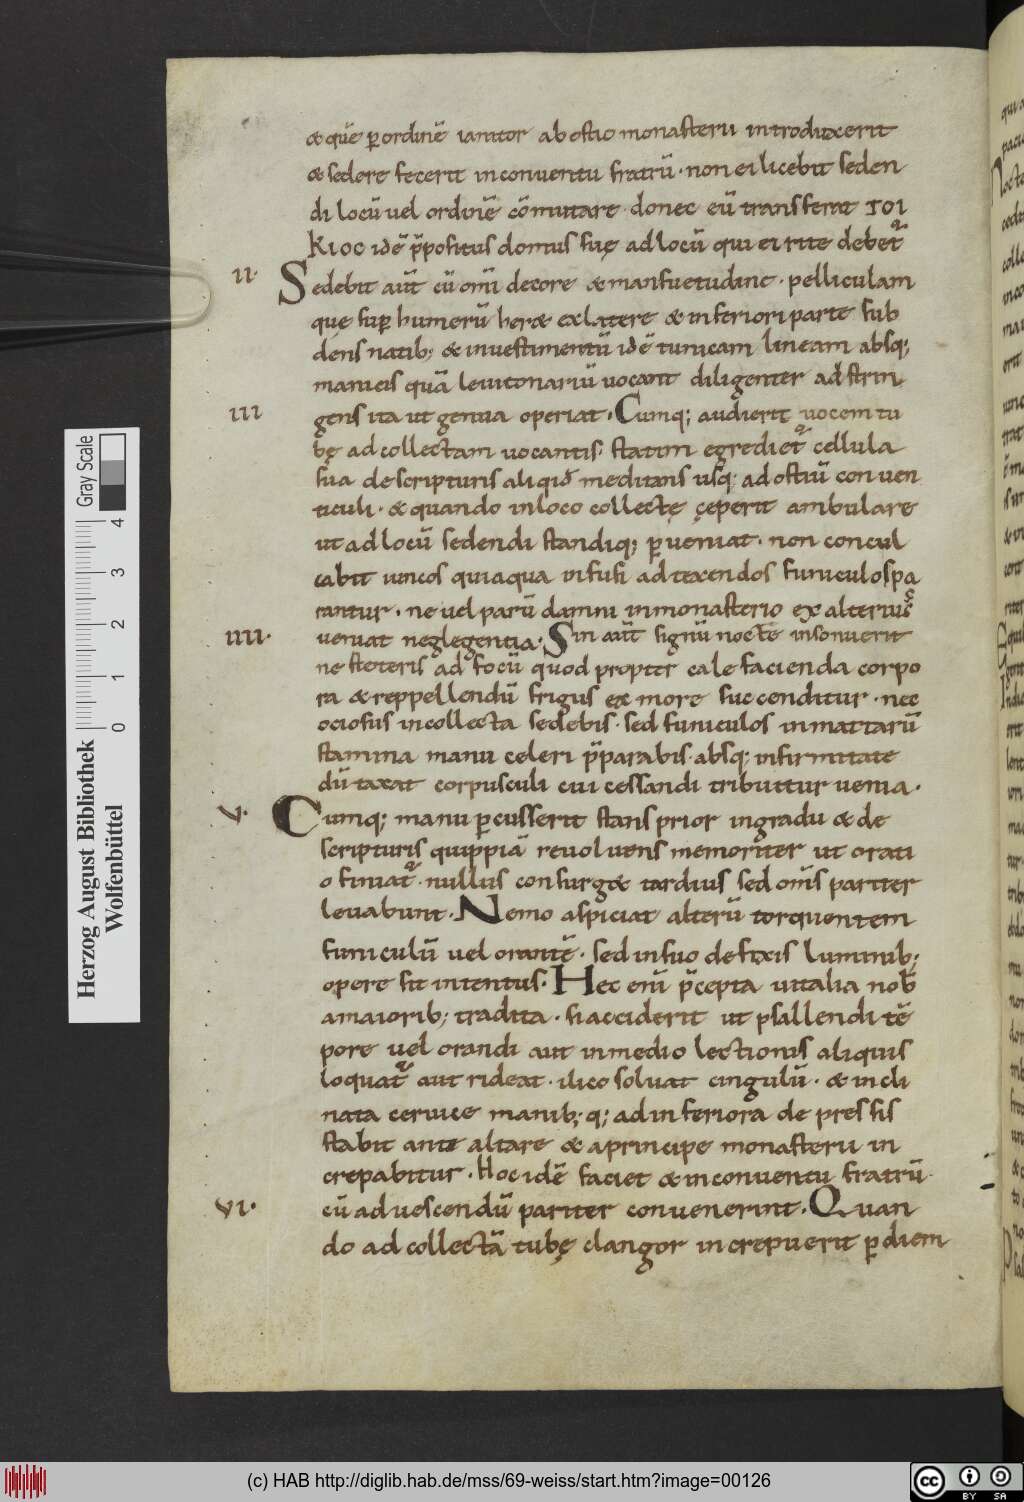 & quē ꝑ ordinē ianitor ab ostio monasterii introduxerit
& sedere fecerit in conuentu fratrū · non ei licebit seden
di locū uel ordinē cōmutare · donec eū transferat IOI
KIOC idē p̄positus domus suę ad locū qui ei rite debet᷑
II· Sedebit aūt cū om̄i decore & mansuetudine · pelliculam
que suꝑ humerū her& ex latere & inferiori parte sub
dens natib; & in uestimentū idē tunicam lineam absq;
manicis quā leuitonariū uocant diligenter adstrin
III gens ita ut genua operiat · Cumq; audierit uocem tu
bę ad collectam uocantis · statim egrediet᷑ cellula
sua de scripturis aliqid meditans usq; ad ostiū conuen
ticuli · & quando in loco collectę çeperit ambulare
ut ad locū sedendi standiq; ꝑueniat · non concul
cabit iuncos qui aqua infusi ad texendos funiculos pa
rantur · ne uel parū damni in monasterio ex alterius
IIII· ueniat neglegentia · Sin aūt signū nocte insonuerit
ne steteris ad focū quod propter cale facienda corpo
ra & reppellendū frigus ex more succenditur · nec
ociosus in collecta sedebis · sed funiculos in mattarū
stamina manu celeri p̄parabis · absq; infirmitate
dū taxat corpusculi cui cessandi tribuitur uenia ·
V· Cumq; manu ꝑcusserit stans prior in gradu & de
scripturis quippiā reuoluens memoriter ut orati
o finiat᷑ · nullus consurg& tardius sed om̄s pariter
leuabunt · Nemo aspiciat alterū torquentem
funiculū uel orantē · sed in suo defixis luminib;
opere sit intentus · Hec eni p̄cepta uitalia nob̄
a maiorib; tradita · si acciderit ut psallendi tē
pore uel orandi aut in medio lectionis aliquis
loquat᷑ aut rideat · ilico soluat cingulū · & incli
nata ceruice manib; q; ad inferiora depressis
stabit ante altare & a principe monasterii in
crepabitur · Hoc idē faciet & in conuentu fratrū ·
VI· cū ad uescendū pariter conuenerint · Quan
do ad collectā tubę clangor increpuerit ꝑ diem
Gray Scale
0 1 2 3 4
Herzog August Bibliothek
Wolfenbüttel
(c) HAB http://diglib.hab.de/mss/69-weiss/start.htm?image=00126
cc BY SA